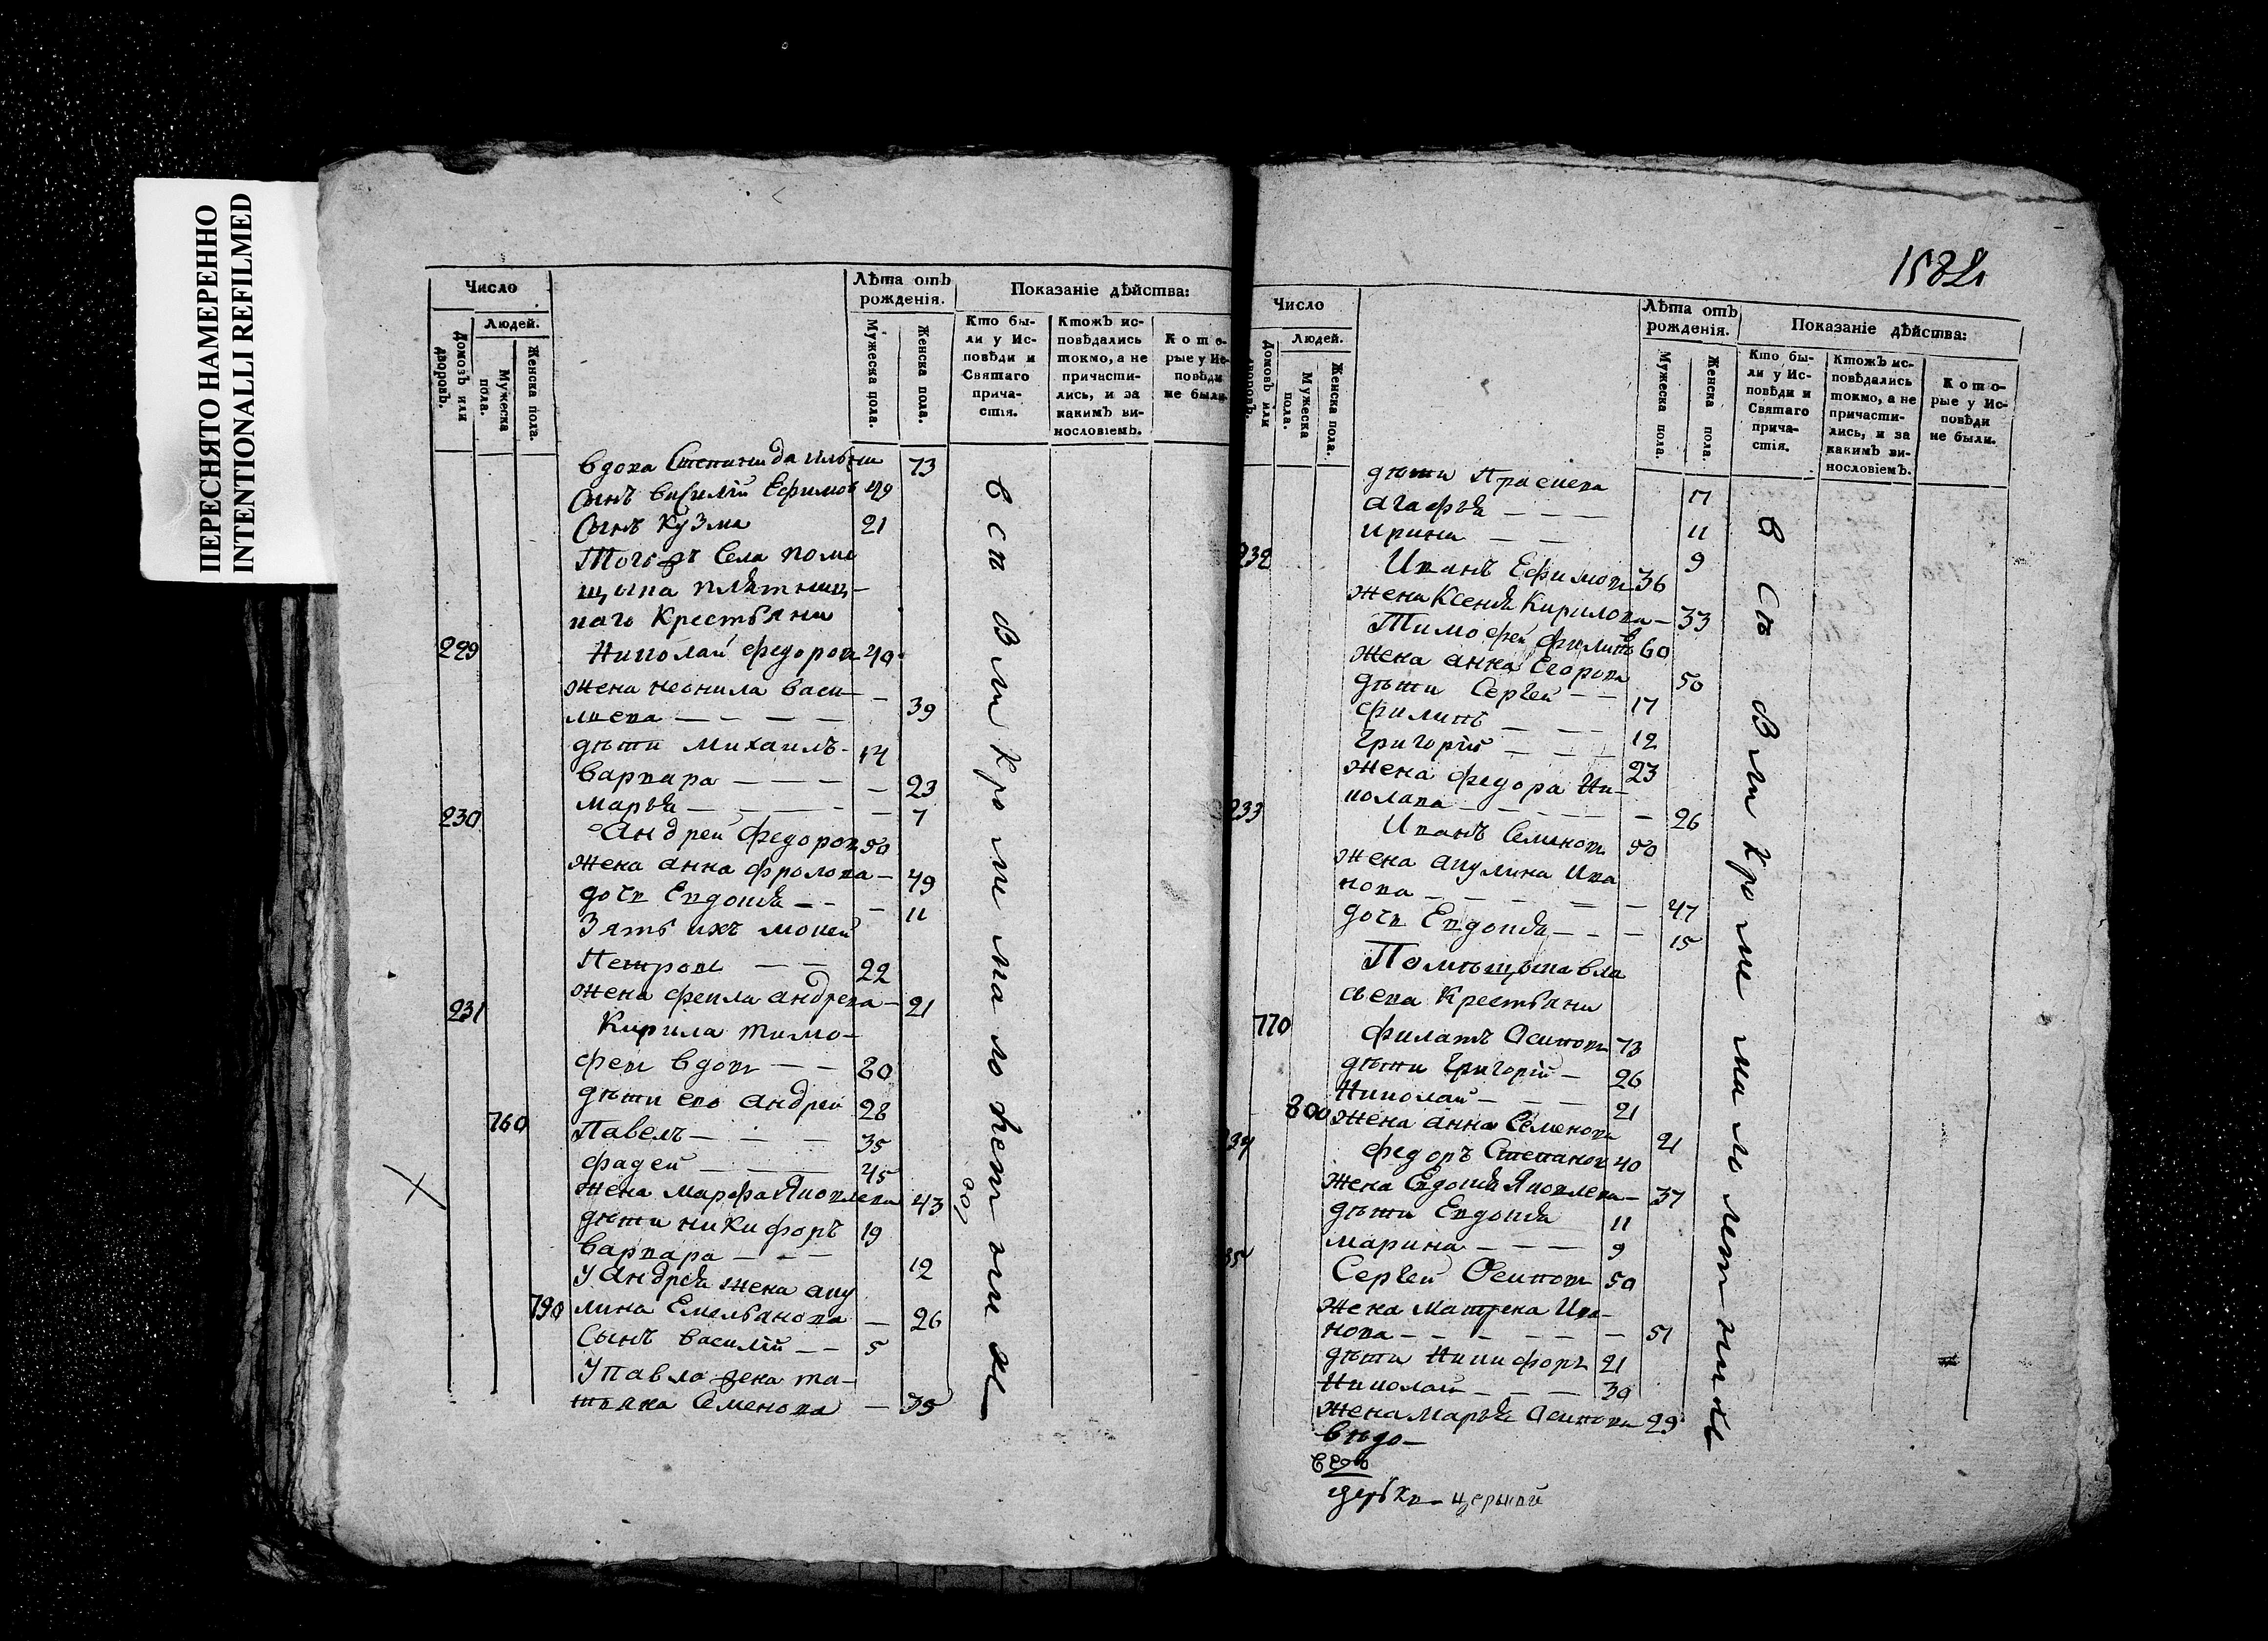 ПЕРЕСНЯТО НАМЕРЕННО
INTENTIONALLI REFILMED
Число
Людей.
Домовъ или дворовъ.
Мужеска пола.
Женска пола.
Лѣта отъ рожденія.
Мужеска пола.
Женска пола.
Показаніе дѣйства:
Кто бы-
ли у Ис-
повѣди и
Святаго
прича-
стія.
Ктожъ ис-
повѣдались
токмо, а не
причасти-
лись, и за
какимъ ви-
нословіемъ.
Кото-
рые у Ис-
повѣди
не были.
вдова Степанида Ильина 73
Сынъ Василій Ефимов 49
Сынъ Кузма 21
Тогожъ Села поме
щыка
наго Крестьяни
229 Николай Федоров 40
жена неонила Васи— — 39
лиева — — — —
дѣти михаилъ - 14
варвара — — — — 23
марья — — — — — 7
230 Андрей Федоров 50
жена анна фролова — 49
дочь Евдокия — — — 11
Зять ихъ мокей
Петров — — 22
жена фекла андрева — 21
231 Кирила тимо—
феев вдов — — 80
дѣти ево андрей 28
760 Павелъ — — — 35
фадей — — — 45
жена марфа Яковлева 43
дѣти никифоръ 19
варвара — — — 12
У андрея жена аку
790 лина Емельянова — 26
Сынъ василій — — 5
У павла жена та—
тьяна Семенова — 35
всѣ вли кроме малолетних
1582
Число
Людей.
Домовъ или дворовъ.
Мужеска пола.
Женска пола.
Лѣта отъ рожденія.
Мужеска пола.
Женска пола.
Показаніе дѣйства:
Кто бы-
ли у Ис-
повѣди и
Святаго
прича-
стія.
Ктожъ ис-
повѣдались
токмо, а не
причасти-
лись, и за
какимъ ви-
нословіемъ.
Кото-
рые у Ис-
повѣди
не были.
дѣти Прасцева
агафья — — — 17
ирина — — 11
9
232 Иванъ Ефимов 36
жена Ксения Кирилова — 33
Тимофей филипъ 60
жена анна Егорова 50
дѣти Сергей — — 17
филипъ — — — 12
григорій — — — 23
жена федора Ни—
колава — — — — 26
233 Иванъ Семенов 50
жена акулина Ива
нова — — — — — 47
дочь Евдокия — — — 15
Помѣщыка вла
сьева Крестьяни
770 филатъ Осипов 73
дѣти григорій — 26
Николай — — — 21
800 жена анна Семенова 21
234 федоръ Степанов 40
жена Евдокия Яковлева — 37
дѣти Евдокия 11
марина — — — 9
35 Сергей Осипов 50
жена матрена Ива—
нова — — — — — 51
дѣти Никифоръ 21
Николай — — — 30
жена марья Осипова 29
всѣ вли кроме малолетних
вѣдо—
церквей